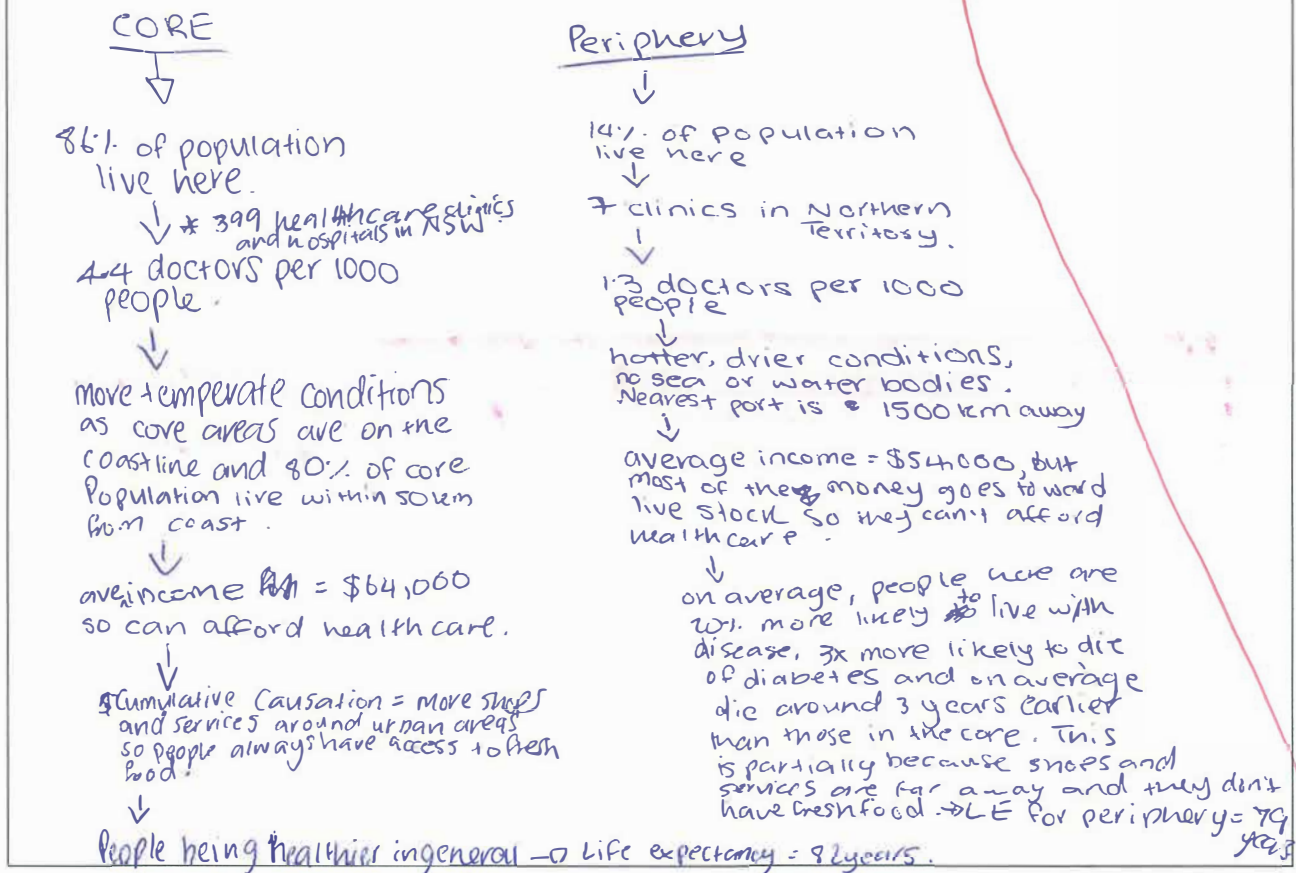 CORE
86% of population
live here.
* 399 healthcare clinics
and hospitals in NSW
4.4 doctors per 1000
people.
more temperate conditions
as core areas are on the
coastline and 80% of core
Population live within 50km
from coast.
ave, income = $64,000
so can afford healthcare.
Cumulative Causation = more shops
and services around urban areas
so people always have access to fresh
food.
People being healthier in general → Life expectancy = 82years.
Periphery
14% of population
live here
7 clinics in Northern
Territory.
1.3 doctors per 1000
people
hotter, drier conditions,
no sea or water bodies.
Nearest port is 1500 km away
average income = $54,000, but
most of the money goes toward
live stock so they can't afford
healthcare.
on average, people here are
20% more likely to live with
disease, 3x more likely to die
of diabetes and on average
die around 3 years earlier
than those in the core. This
is partially because shops and
services are far away and they don't
have fresh food. → LE for periphery = 79
years